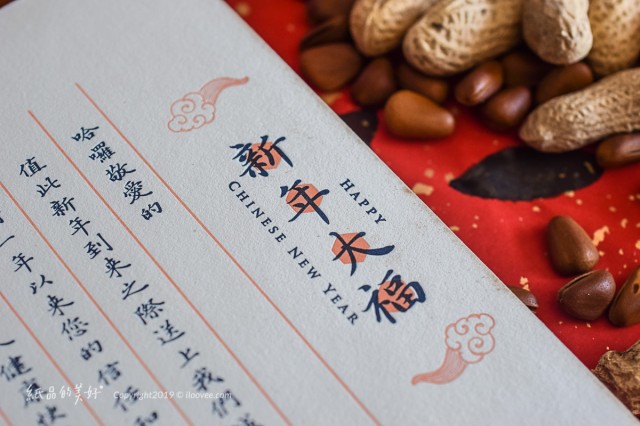 新年大福
HAPPY
CHINESE NEW YEAR
哈囉敬愛的
值此新年到來之際送上我們
一年以來您的信任和
健康快
紙品的美好
Copyright2019 © iloovee.com